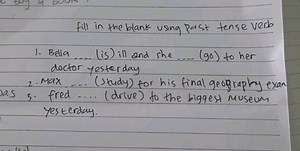 fill in the blank using past tense verb
1. Bella .... (is) ill and she .... (go) to her
doctor yesterday
2. Max .... (study) for his final geography exam
3. fred .... (drive) to the biggest museum
yesterday.